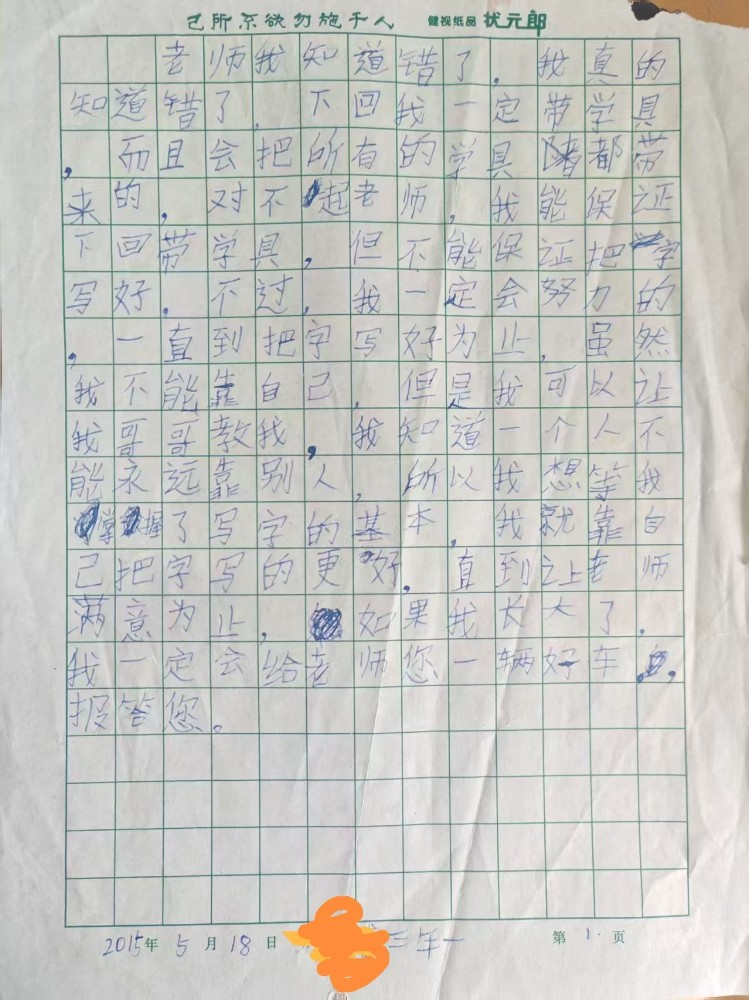 己所不欲勿施于人 健视纸品 状元郎
老师我知道错了，我真的
知道错了，下回我一定带学具
，而且会把所有的学具都带
来的，对不起老师，我能保证
下回带学具，但不能保证把字
写好。不过，我一定会努力的
，一直到把字写好为止，虽然
我不能靠自己，但是我可以让
我哥哥教我，我知道一个人不
能永远靠别人，所以我想等我
掌握了写字的基本，我就靠自
己把字写的更好，直到让老师
满意为止，如果我长大了，
我一定会给老师您一辆好车，
报答您。
2015年5月18日 三年一 第1页